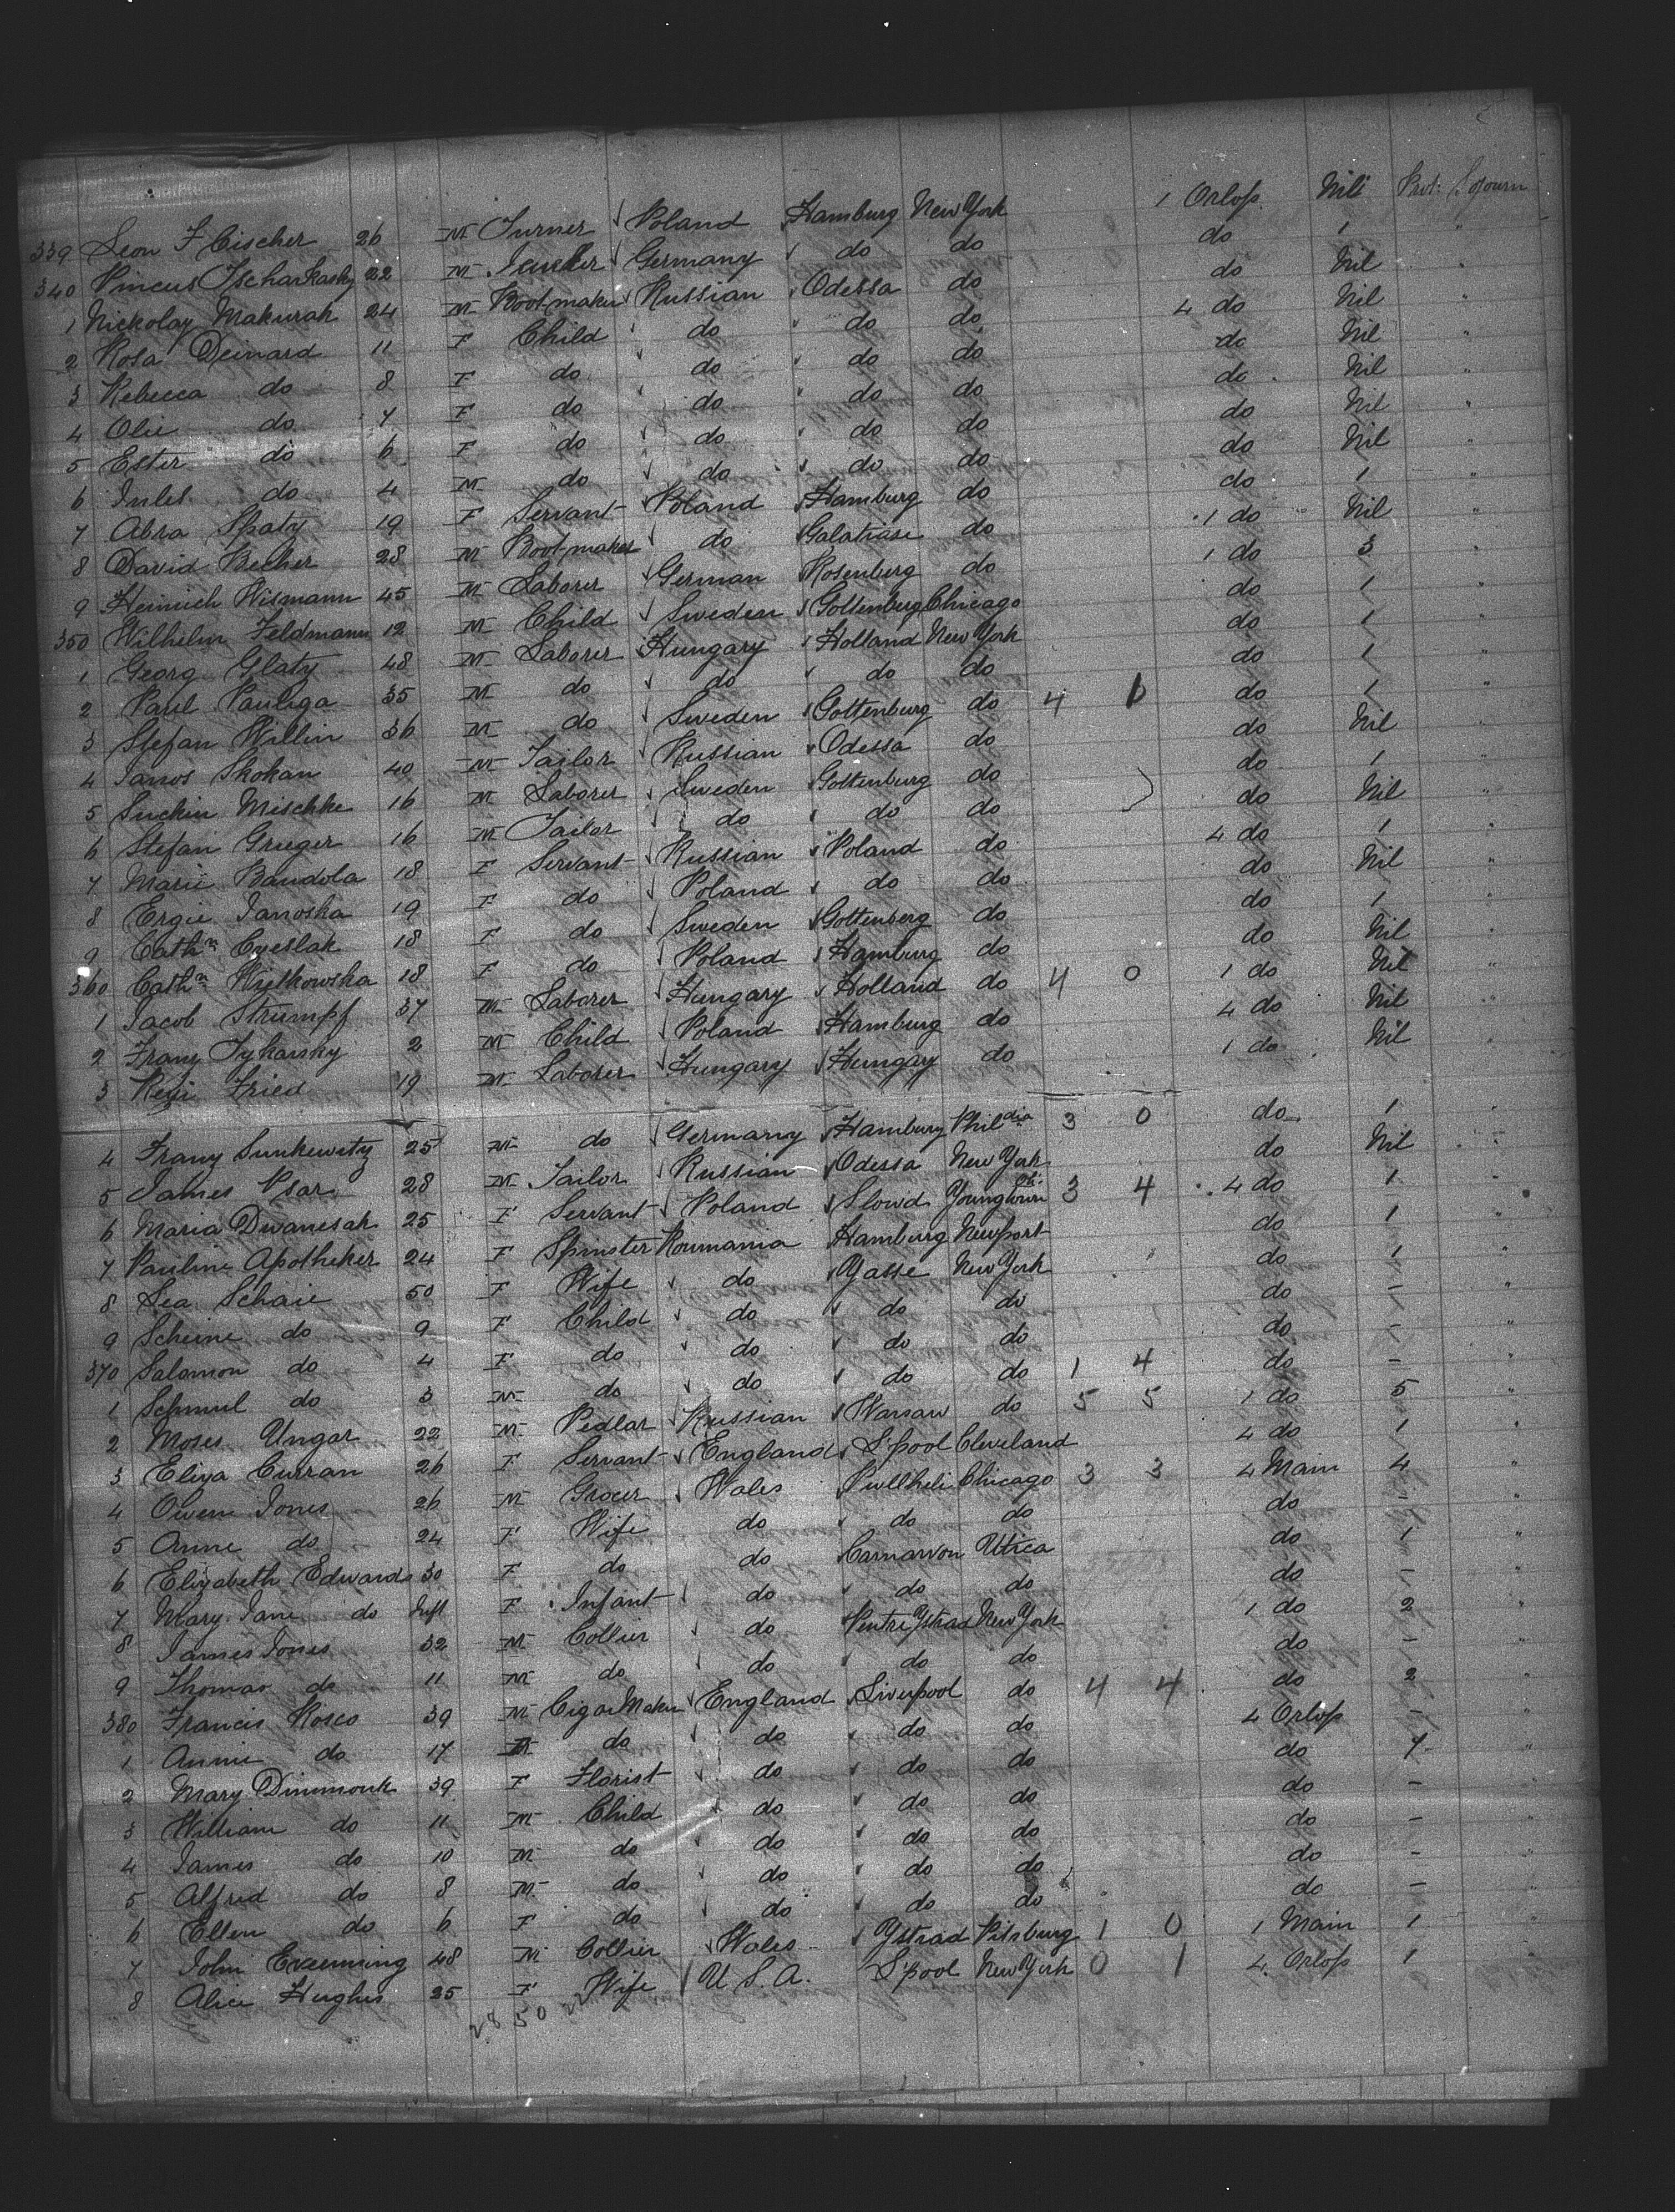 339 Leon F Cischer 26 M Turner Poland Hamburg New York 1 Orlop Nil Prot. Sojourn
340 Pincus Tscharkasky 22 M Germany do do do 1 "
1 Nickolay Makurah 24 M Bootmaker Russian Odessa do do Nil "
2 Rosa Deinard 11 F Child do do do 4 do Nil "
3 Rebecca do 8 F do do do do do Nil "
4 Olie do 7 F do do do do do Nil "
5 Ester do 6 F do do do do do Nil "
6 Inles do 4 M do do do do do Nil "
7 Abra Spaty 19 F Servant Poland Hamburg do do 1 "
8 David Becher 28 M Bootmaker do Galatiase do 1 do Nil "
9 Heinrich Wismann 45 M Laborer German Rosenberg do 1 do 3 "
350 Wilhelm Feldmann 12 M Child Sweden Gottenberg Chicago do 1
1 Georg Glaty 48 M Laborer Hungary Holland New York do 1
2 Paul Pauliga 35 M do do do do do 1
3 Stefan Willin 36 M do Sweden Gottenburg do 4 0 do 1 "
4 Janos Skokan 40 M Tailor Russian Odessa do do Nil
5 Suckin Mischke 16 M Laborer Sweden Gottenburg do do 1
6 Stefan Grieger 16 M Tailor do do do do Nil "
7 Marie Bandola 18 F Servant Russian Poland do 4 do 1 "
8 Ergie Janoska 19 F do Poland do do do Nil "
9 Cathn Cyeslak 18 F do Sweden Gottenberg do do 1 "
360 Cathn Wijtkowska 18 F do Poland Hamburg do do Nil "
1 Jacob Strumpf 37 M Laborer Hungary Holland do 4 0 1 do Nil "
2 Franz Tykarsky 2 M Child Poland Hamburg do 4 do Nil "
3 Resi Fried 19 M Laborer Hungary Hungary do 1 do Nil
4 Franz Sunkewitz 25 M do Germany Hamburg Phildia 3 0 do 1
5 James Psar 28 M Tailor Russian Odessa New York do Nil
6 Maria Dwanesak 25 F Servant Poland Slowd Youngtown 3 4 4 do 1 "
7 Pauline Apotheker 24 F Spinster Roumania Hamburg Newport do 1 "
8 Lea Schaie 50 F Wife do Yasse New York do 1 "
9 Scheine do 9 F Child do do do do - "
370 Salomon do 4 F do do do do do - "
1 Schmul do 3 M do do do do 1 4 do - "
2 Moses Ungar 22 M Pedlar Russian Warsaw do 5 5 1 do 5 "
3 Eliza Curran 26 F Servant England L'pool Cleveland 4 do 1 "
4 Owen Jones 26 M Grocer Wales Pwllheli Chicago 3 3 4 Main 4 "
5 Anne do 24 F Wife do do do do - "
6 Elizabeth Edwards 30 F do do Carnarvon Utica do 1 "
7 Mary Jane do Inft F Infant do do do do - "
8 James Jones 32 M Collier do Pentre Ystrad New York 1 do 2 "
9 Thomas do 11 M do do do do do - "
380 Francis Rosco 39 M Cigar Maker England Liverpool do 4 4 do 2 "
1 Annie do 17 F do do do do 4 Orlop - "
2 Mary Dimmock 39 F Florist do do do do 7 "
3 William do 11 M Child do do do do - "
4 James do 10 M do do do do do - "
5 Alfred do 8 M do do do do do - "
6 Ellen do 6 F do do do do do - "
7 John Evemming 48 M Collier Wales Ystrad Pitsburg 1 0 1 Main 1 "
8 Alice Hughes 25 F Wife U.S.A. L'pool New York 0 1 4 Orlop 1
28 50 22